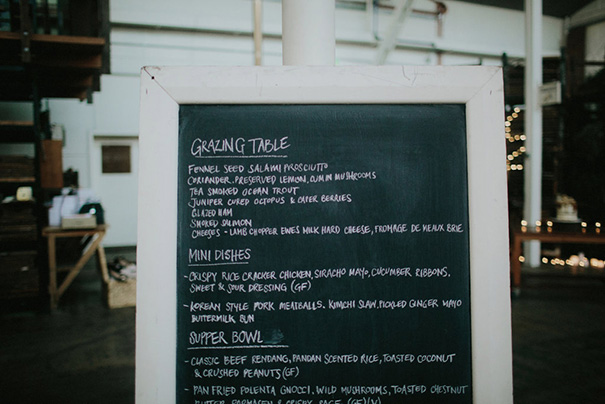 GRAZING TABLE
FENNEL SEED SALAMI PROSCIUTTO
CORIANDER, PRESERVED LEMON, CUMIN MUSHROOMS
TEA SMOKED OCEAN TROUT
JUNIPER CURED OCTOPUS & CAPER BERRIES
GLAZED HAM
SMOKED SALMON
CHEESES - LAMB CHOPPER EWES MILK HARD CHEESE, FROMAGE DE MEAUX BRIE
MINI DISHES
- CRISPY RICE CRACKER CHICKEN, SIRACHO MAYO, CUCUMBER RIBBONS,
SWEET & SOUR DRESSING (GF)
- KOREAN STYLE PORK MEATBALLS. KIMCHI SLAW, PICKLED GINGER MAYO
BUTTERMILK BUN
SUPPER BOWL
- CLASSIC BEEF RENDANG, PANDAN SCENTED RICE, TOASTED COCONUT
& CRUSHED PEANUTS (GF)
- PAN FRIED POLENTA GNOCCI, WILD MUSHROOMS, TOASTED CHESTNUT
BUTTER PARMESAN & CRISPY SAGE (GF)(V)